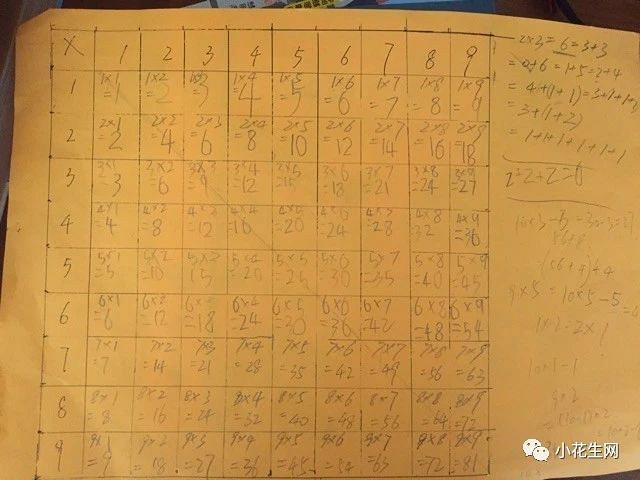 × 1 2 3 4 5 6 7 8 9
1 1×1 =1 1×2 =2 =3 1×4 =4 1×5 =5 1×6 =6 1×7 =7 1×8 =8 1×9 =9
2 2×1 =2 2×2 =4 2×3 =6 2×4 =8 2×5 =10 2×6 =12 2×7 =14 2×8 =16 2×9 =18
3 3×1 =3 3×2 =6 3×3 =9 3×4 =12 3×5 =15 3×6 =18 3×7 =21 3×8 =24 3×9 =27
4 4×1 =4 4×2 =8 4×3 =12 4×4 =16 4×5 =20 4×6 =24 =28 4×8 =32 4×9 =36
5 5×1 =5 5×2 =10 5×3 15 5×4 =20 5×5 =25 5×6 =30 5×7 =35 5×8 =40 5×9 =45
6 6×1 =6 6×2 =12 6×3 =18 6×4 =24 6×5 =30 6×6 =36 6×7 =42 6×8 =48 6×9 =54
7 7×1 =7 7×2 =14 7×3 =21 7×4 =28 7×5 =35 7×6 =42 7×7 =49 7×8 =56 7×9 =63
8 8×1 =8 8×2 =16 8×3 =24 8×4 =32 8×5 =40 8×6 =48 8×7 =56 8×8 =64 8×9 =72
9 9×1 =9 9×2 =18 9×3 =27 9×4 =36 9×5 =45 9×6 =54 9×7 =63 9×8 =72 9×9 =81
2×3=6=3+3
=0+6=1+5=2+4
=4+(1+1)=3+1+1+1
=3+(1+2)
=1+1+1+1+1+1
56+8
(56+4)+4
9×5=10×5-5
1×2=2×1
10×1-1
9×2
小花生网